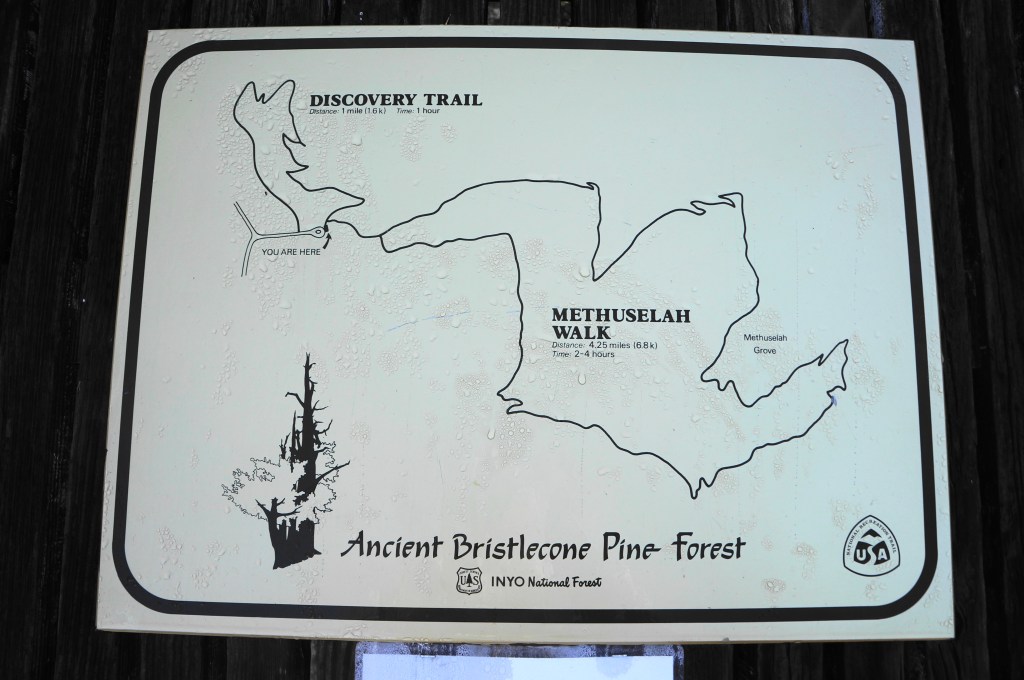 DISCOVERY TRAIL
Distance: 1 mile (1.6 k) Time: 1 hour
YOU ARE HERE
METHUSELAH
WALK
Distance: 4.25 miles (6.8 k)
Time: 2-4 hours
Methuselah
Grove
Ancient Bristlecone Pine Forest
US
INYO National Forest
NATIONAL RECREATION TRAIL
USA